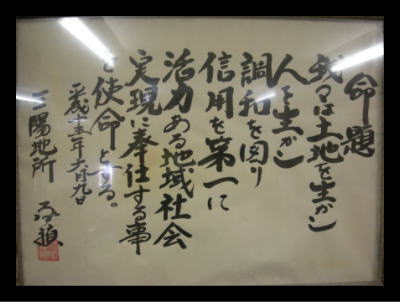 命題
我々は土地を生かし
人を生かし
調和を図り
信用を第一に
活力ある地域社会
実現に奉仕する事
を使命とする。
平成十五年六月九日
三陽地所